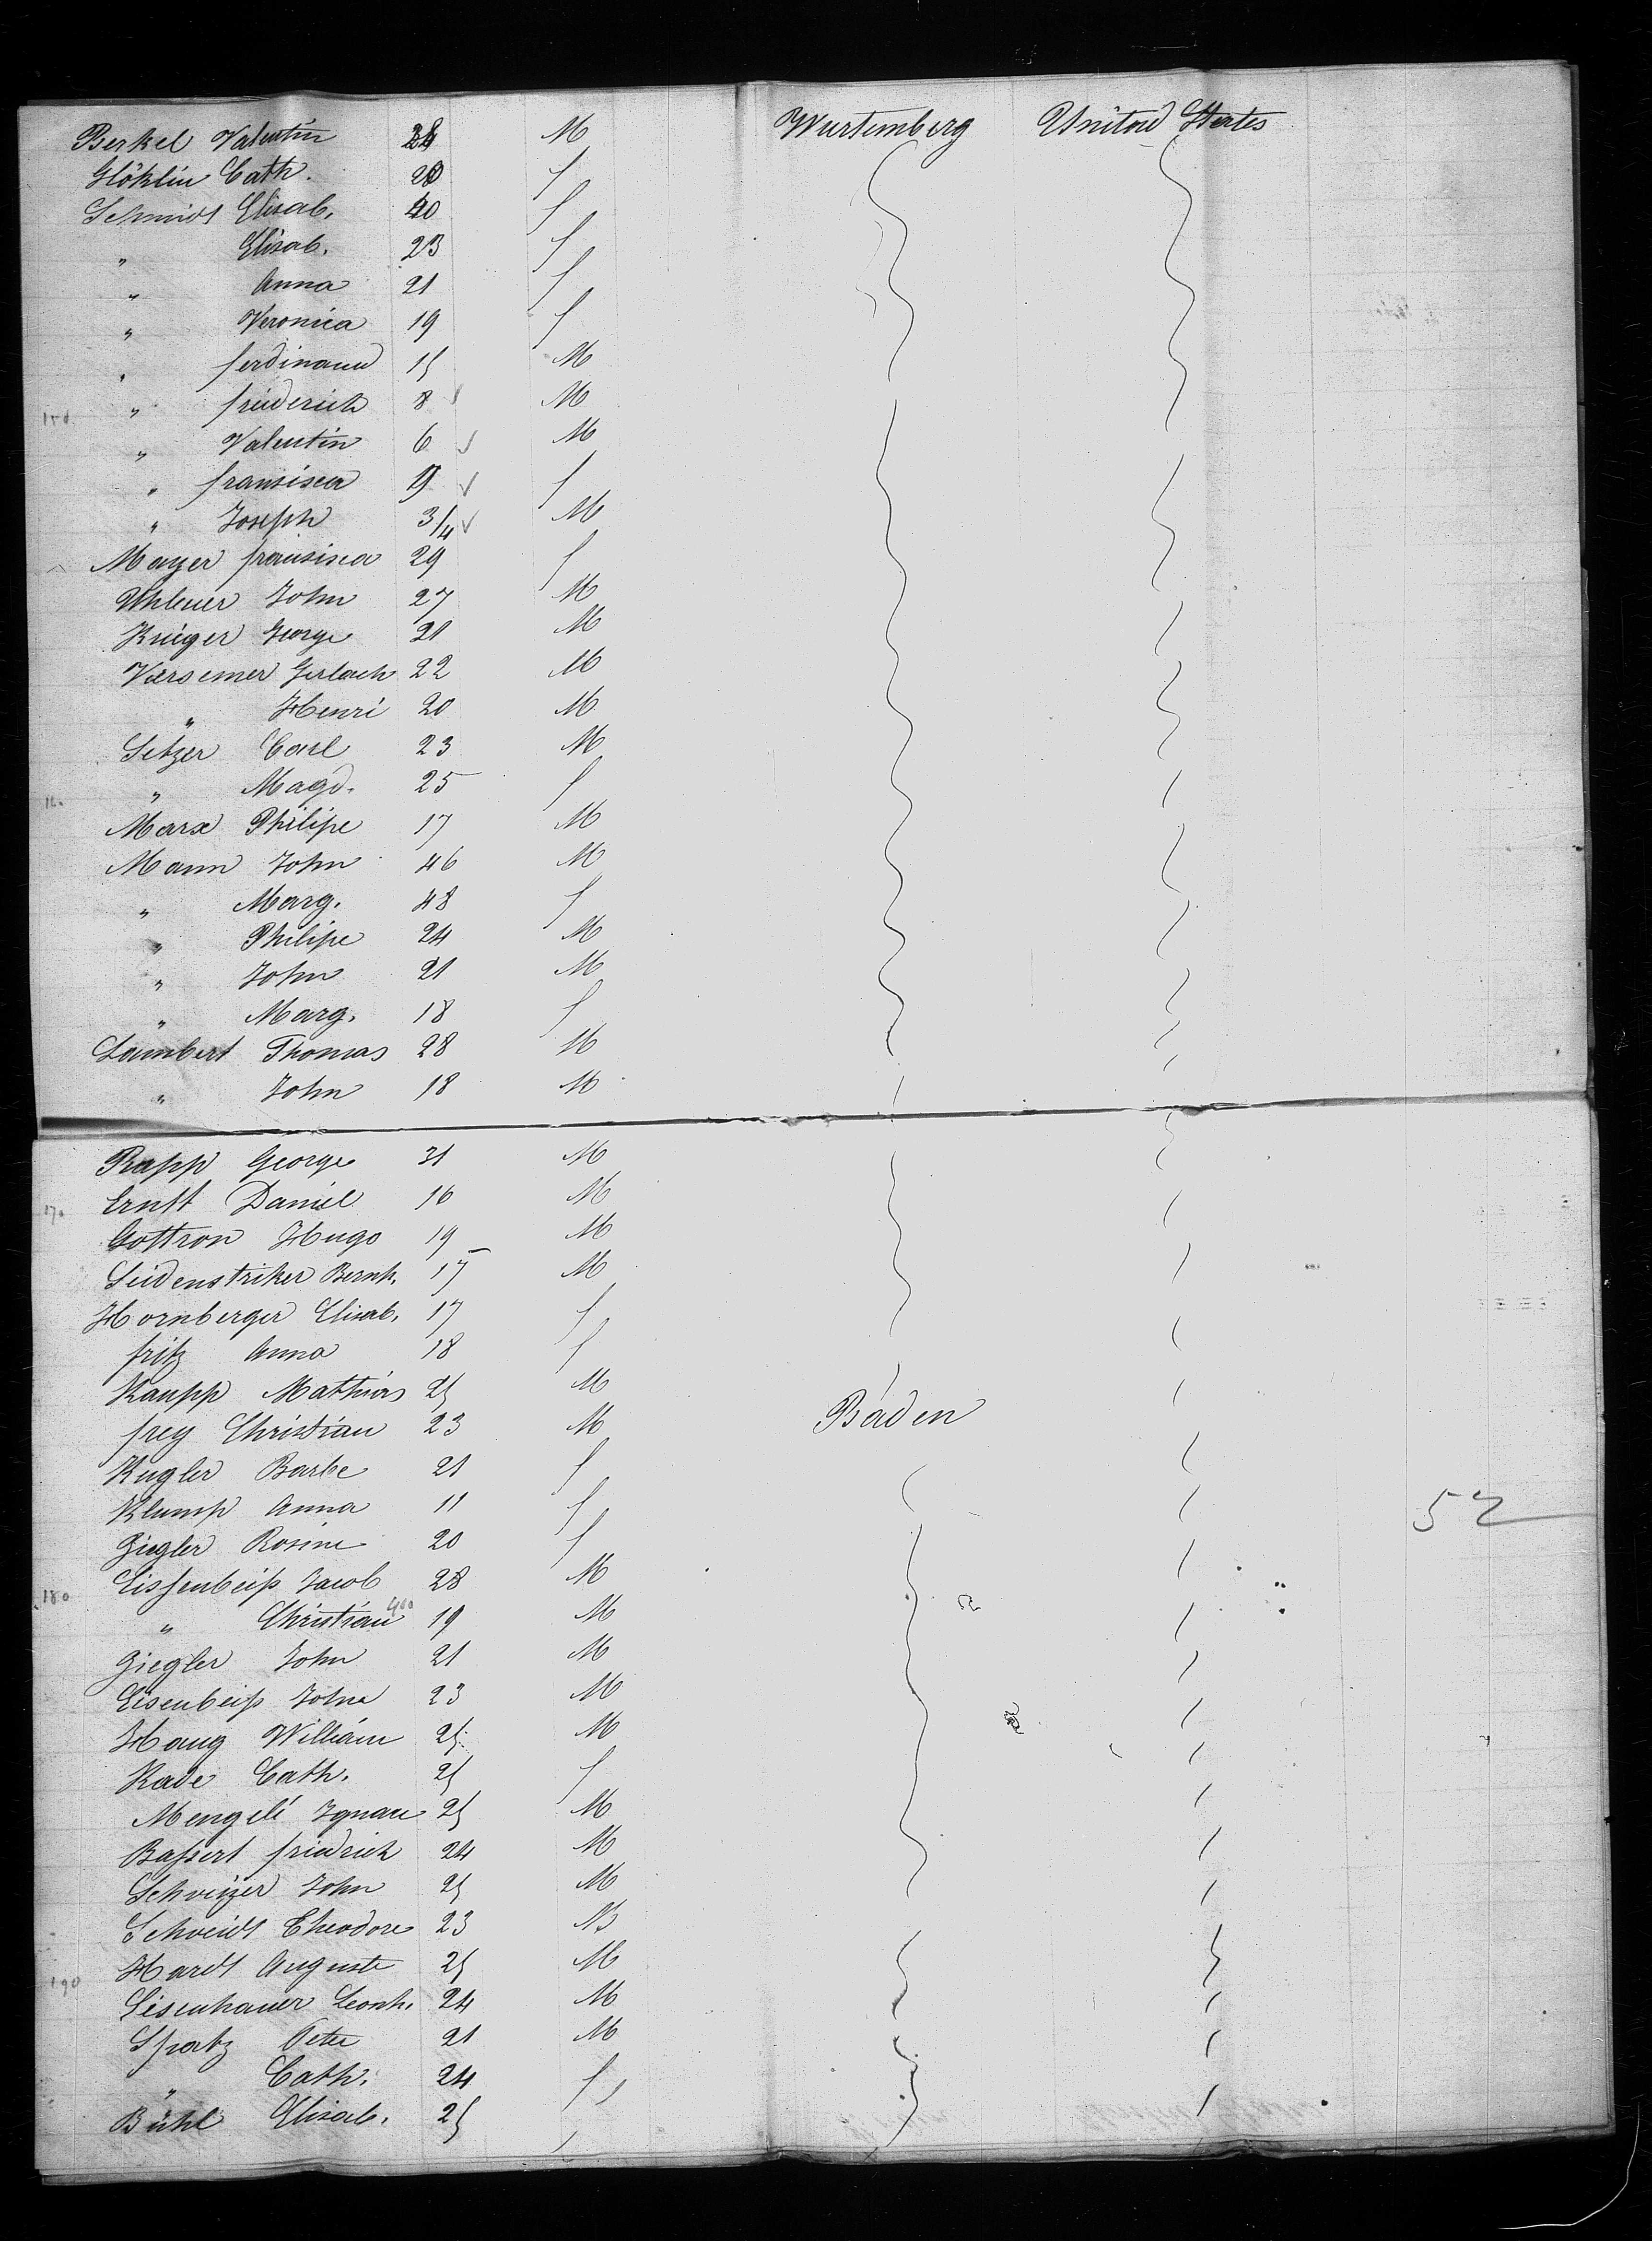 Berkel Valentin 28 M Wurtemberg Unitoed Stertes
Glöklin Cath. 20 f
Schmidt Elisab. 40 f
" Elisab. 23 f
" Anna 21 f
" Veronica 19 f
" ferdinand 15 M
" friederich 8 M
" Valentin 6 M
" fransisca f
" Joseph 3/4 M
Mayer fransisca 29 f
Uhleuer John 27 M
Krüger George 21 M
Versemer Gerlach 22 M
" Henri 20 M
Setzer Carl 23 M
" Magd. 25 f
Marx Philipe 17 M
Mann John 46 M
" Marg. 48 f
" Philipe 24 M
" John 21 M
" Marg. 18 f
Lambert Thomas 28 M
" John 18 M
Rapp George 31 M
170 Ernst Daniel 16 M
Gottron Hugo 19 M
Seidenstriker Bernh. 17 M
Hornberger Elisab. 17 f
fritz Anna 18 f
Kaupp Mathias 25 M
frey Christian 23 M Baden
Kugler Barbe 21 f
Klump Anna 11 f 52
Ziegler Rosine 20 f
Eissenbeiss Jacob 28 M
180 " Christian 19 M
Ziegler John 21 M
Eisenbeiss John 23 M
Haug William 25 M
Kade Cath. 25 f
Mengele Ignace 25 M
Bassert friedrich 24 M
Schweizer John 25 M
Schweidt Theodore 23 M
190 Hardt Auguste 25 M
Eisenhauer Leonh. 24 M
Spatz Peter 21 M
" Cath. 24 f
Bühl Elisab. 25 f